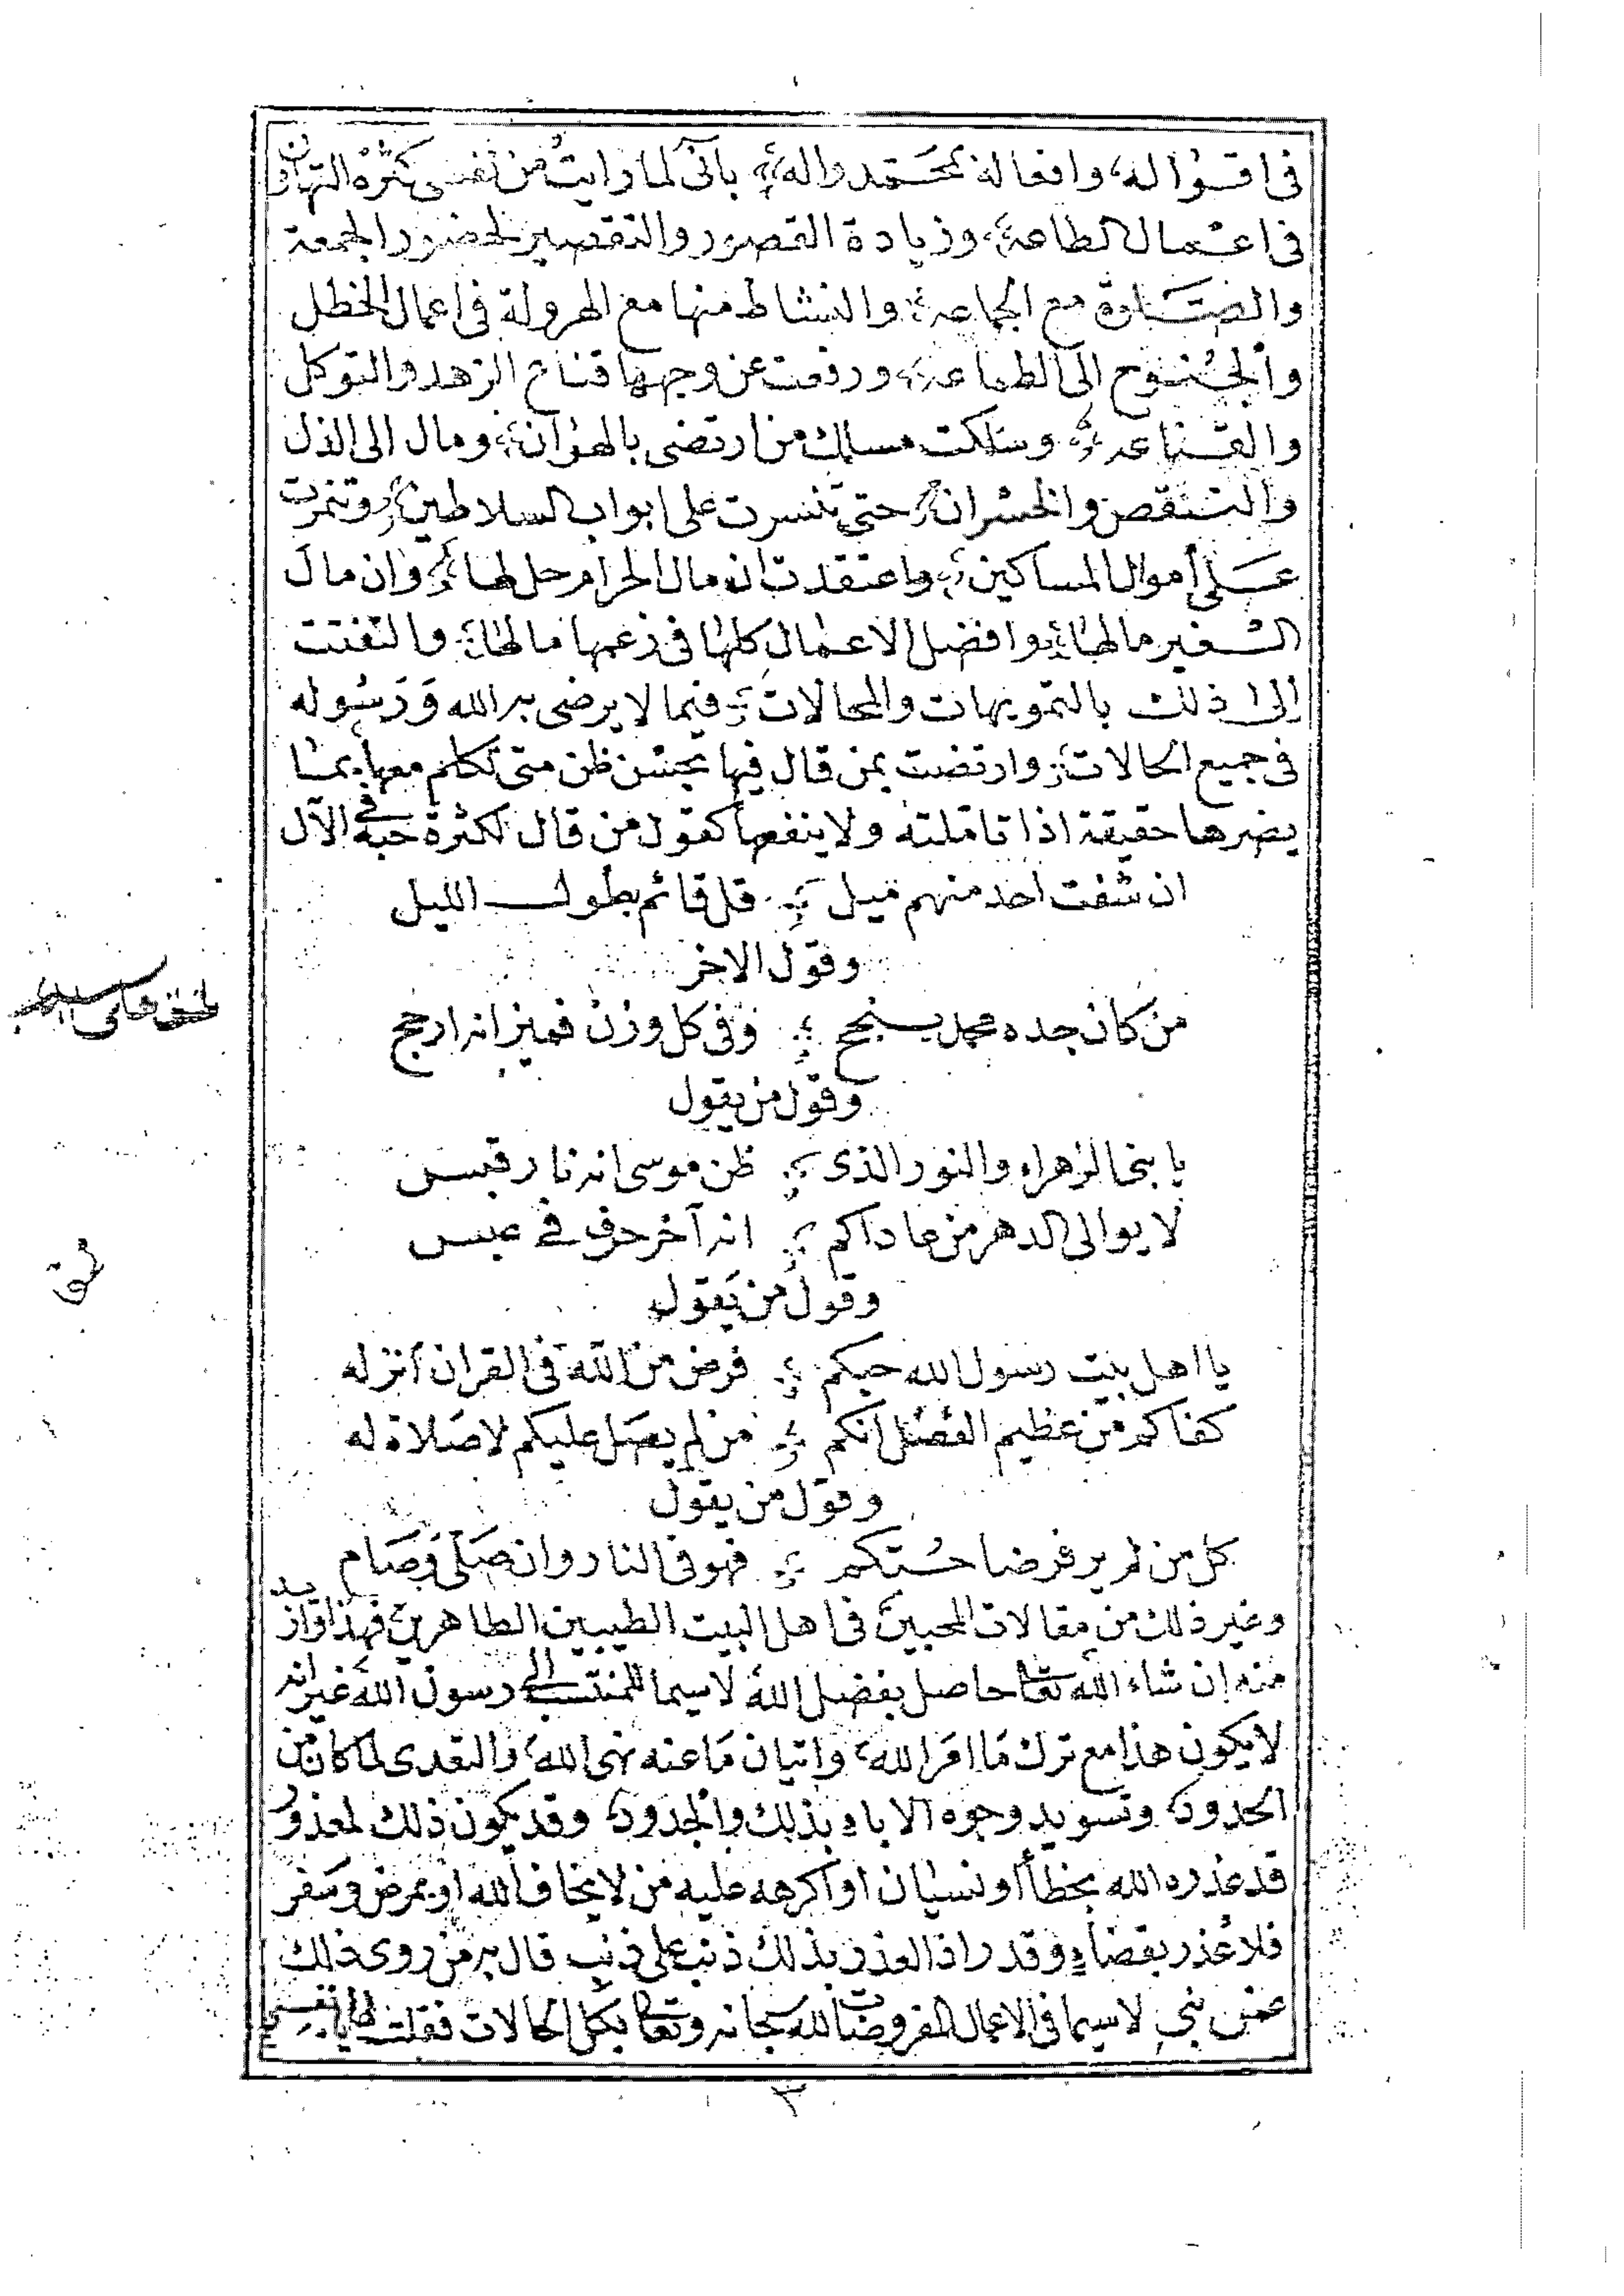 في اقواله، وافعاله بمحمد واله، بأني لما رايت من نفسي كثرة التهاون
في اعمال الطاعة، وزيادة القصور والتقصير لحضور الجمعة
والصلوة مع الجماعة، والنشاط منها مع الهرولة في اعمال الخطل
والجنوح الى الطماعة، ورفعت عن وجهها قناع الزهد والتوكل
والقناعة، وسلكت مسلك من ارتضى بالهوان، ومال الى الذل
والتنقص والخسران، حتى تنسرت على ابواب السلاطين، وتنمرت
على أموال المساكين، واعتقدت ان مال الحرام حل لها، وان مال
الغير مالها، وافضل الاعمال كلها في زعمها مالها، والتفتت
إلى ذلك بالتمويهات والمحالات، فيما لا يرضى به الله وَرَسُوله
في جميع الحالات، وارتضت بمن قال فيها بحسن ظن متى تكلم معها بما
يضرها حقيقة اذا تاملته ولا ينفعها كقول من قال لكثرة حبه في الآل
ان شفت احد منهم ميل قل قائم بطول الليل
وقول الاخر
من كان جده محمد ينجح وفي كل وزن فميزانه ارجح
وقول من يقول
يا بني الزهراء والنور الذي ظن موسى انه نار قبس
لا يوالي الدهر من عاداكم انه آخر حرف في عبس
وقول من يَقول
يا اهل بيت رسول الله حبكم فرض من الله في القران أنزله
كفاكم من عظيم الفضل انكم من لم يصل عليكم لا صلاة له
وقول من يقول
كل من لم ير فرضا حُبّكم فهو في النار وان صَلّى وَصَام
وغير ذلك من مقالات المحبين في اهل البيت الطيبين الطاهرين، فهذا وازيد
منه إن شاء الله تعالى حاصل بفضل الله لا سيما للمنتسب الى رسول الله غير انه
لا يكون هذا مع ترك مَا امَرَ الله، واتيان مَا عنه نهى الله، والتعدي لما كان من
الحدود، وتسويد وجوه الاباء بذلك والجدود، وقد يكون ذلك لمعذور
قد عذره الله بخطأ او نسيان او اكرهه عليه من لا يخاف الله او بمرض وسفر
فلا عُذر بقضاءٍ وقد راذا العذر بذلك ذنب على ذنب قال به من روى ذلك
عن نبي لا سيما في الاعمال المفروضات لله سبحانه وتعالى بكل الحالات فقلت لها يا نفسي
٣